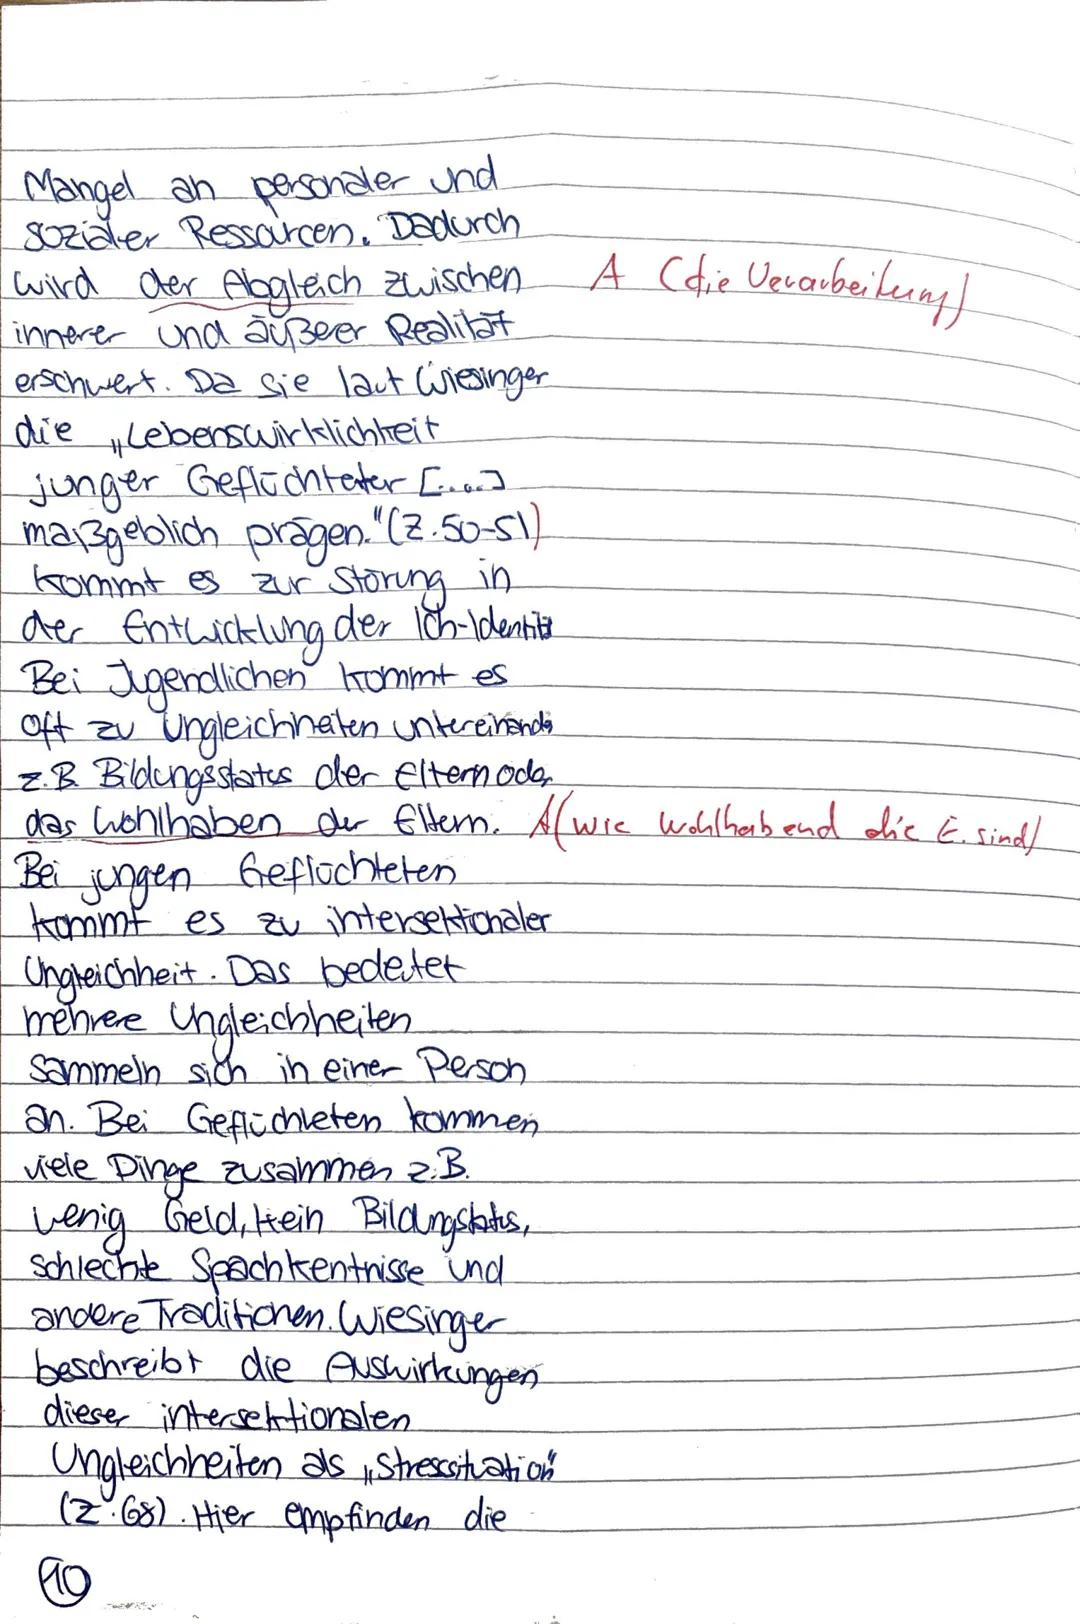 Mangel an personaler und
sozialer Ressourcen. Dadurch
wird der Abgleich zwischen A (die Verarbeitung)
innerer und äußerer Realität
erschwert. Da sie laut Wiesinger
die „Lebenswirklichkeit
junger Geflüchteter [...]
maßgeblich prägen."(Z.50-51)
kommt es zur Störung in
der Entwicklung der Ich-Identität
Bei Jugendlichen kommt es
oft zu Ungleichheiten untereinander
z.B. Bildungsstatus der Eltern oder
das Wohlhaben der Eltern. A (wie wohlhabend die E. sind)
Bei jungen Geflüchteten
kommt es zu intersektionaler
Ungleichheit. Das bedeutet
mehrere Ungleichheiten
sammeln sich in einer Person
an. Bei Geflüchteten kommen
viele Dinge zusammen z.B.
wenig Geld, kein Bildungstatus,
schlechte Spachkentnisse und
andere Traditionen. Wiesinger
beschreibt die Auswirkungen
dieser intersektionalen
Ungleichheiten als „Stresssituation"
(Z.68). Hier empfinden die
10